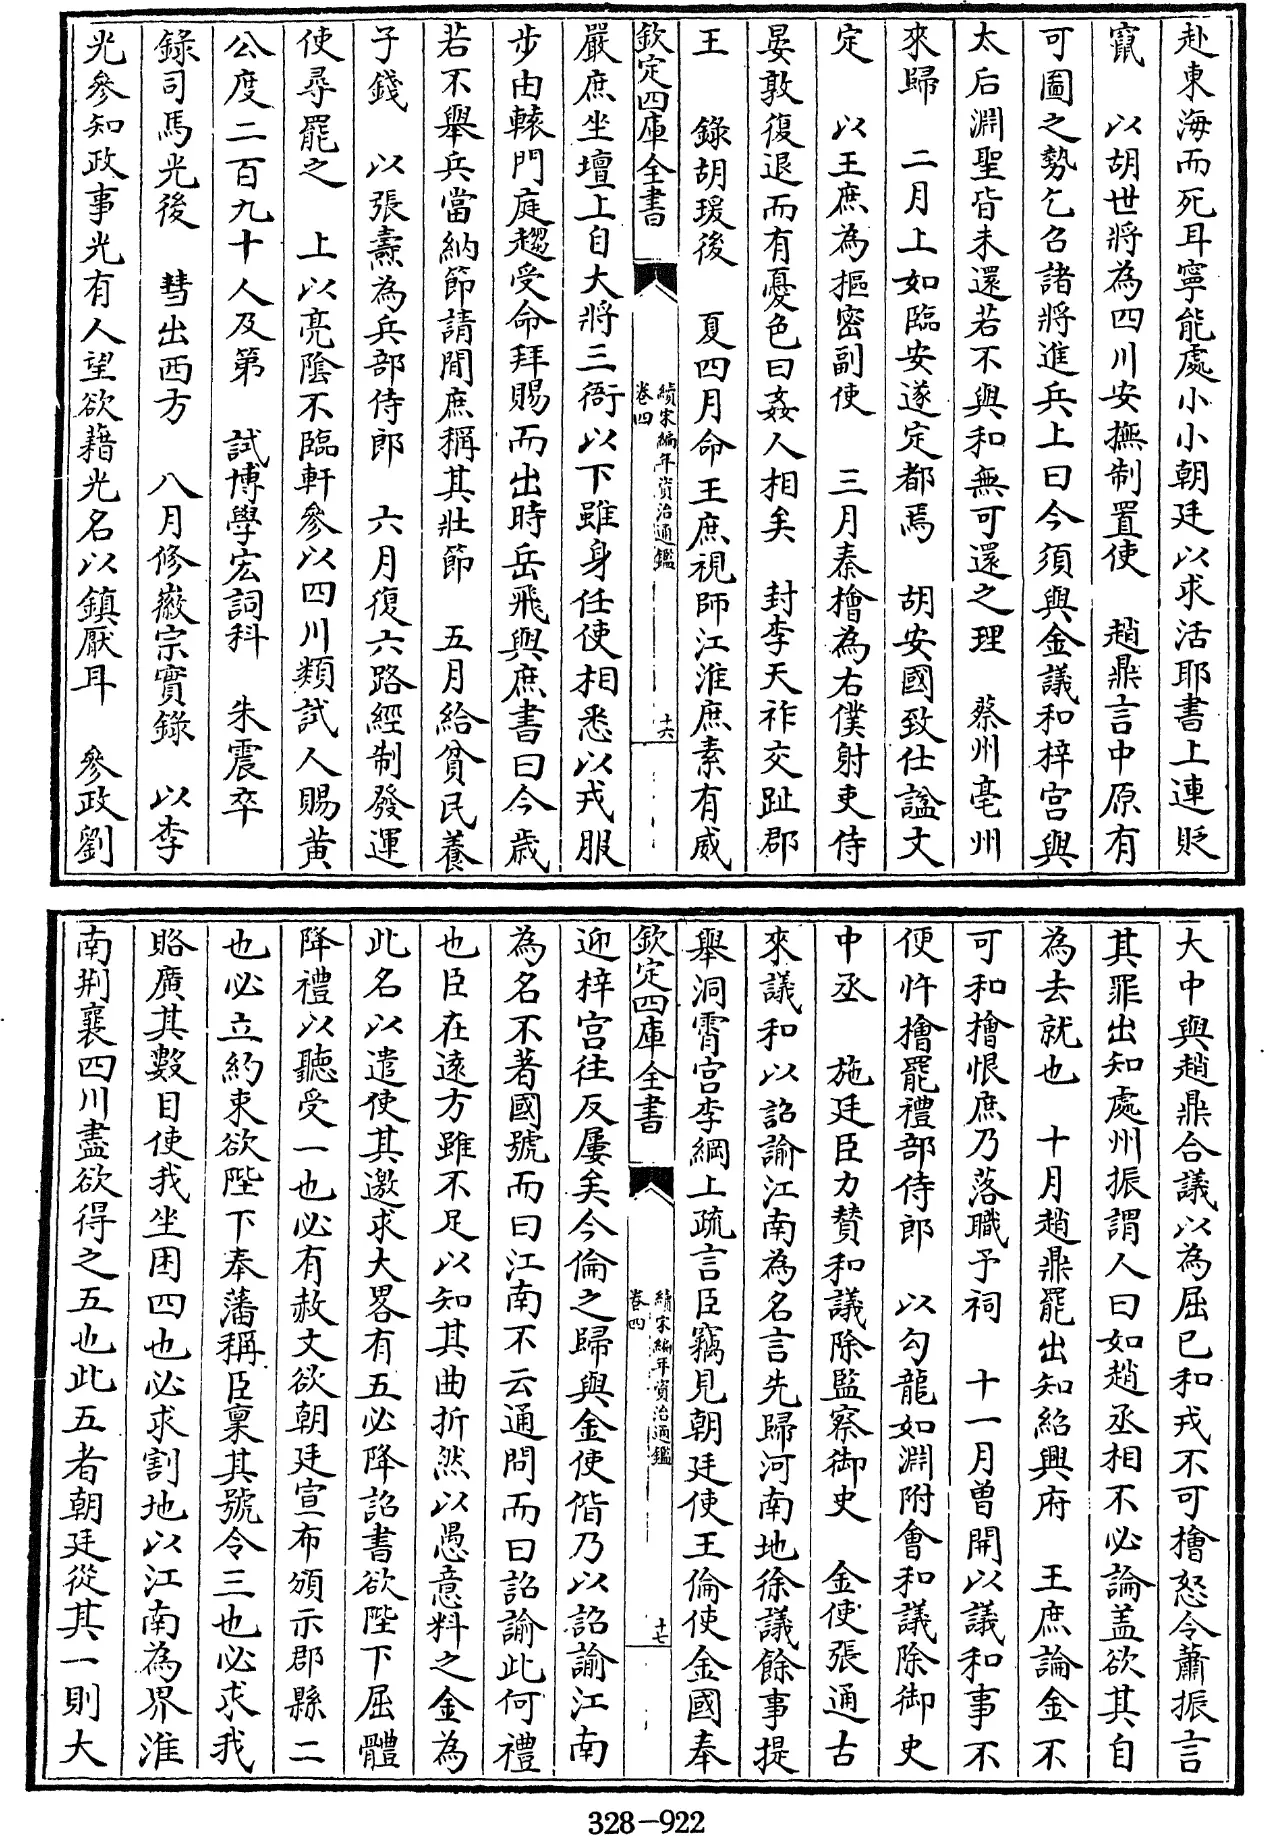 赴東海而死耳寧能處小小朝廷以求活耶書上連貶
竄　以胡世將為四川安撫制置使　趙鼎言中原有
可圖之勢乞召諸將進兵上曰今須與金議和梓宮與
太后淵聖皆未還若不與和無可還之理　蔡州亳州
來歸　二月上如臨安遂定都焉　胡安國致仕諡文
定　以王庶為樞密副使　三月秦檜為右僕射吏侍
晏敦復退而有憂色曰姦人相矣　封李天祚交趾郡
王　錄胡瑗後　夏四月命王庶視師江淮庶素有威
欽定四庫全書　續宋編年資治通鑑卷四　十六
嚴庶坐壇上自大將三衙以下雖身任使相悉以戎服
步由轅門庭趨受命拜賜而出時岳飛與庶書曰今歲
若不舉兵當納節請閒庶稱其壯節　五月給貧民養
子錢　以張燾為兵部侍郎　六月復六路經制發運
使尋罷之　上以亮陰不臨軒參以四川類試人賜黃
公度二百九十人及第　試博學宏詞科　朱震卒
錄司馬光後　彗出西方　八月修徽宗實錄　以李
光參知政事光有人望欲藉光名以鎮厭耳　參政劉
大中與趙鼎合議以為屈已和戎不可檜怒令蕭振言
其罪出知處州振謂人曰如趙丞相不必論盖欲其自
為去就也　十月趙鼎罷出知紹興府　王庶論金不
可和檜恨庶乃落職予祠　十一月曾開以議和事不
便忤檜罷禮部侍郎　以勾龍如淵附會和議除御史
中丞　施廷臣力贊和議除監察御史　金使張通古
來議和以詔諭江南為名言先歸河南地徐議餘事提
舉洞霄宮李綱上疏言臣竊見朝廷使王倫使金國奉
欽定四庫全書　續宋編年資治通鑑卷四　十七
迎梓宮往反屢矣今倫之歸與金使偕乃以詔諭江南
為名不著國號而曰江南不云通問而曰詔諭此何禮
也臣在遠方雖不足以知其曲折然以愚意料之金為
此名以遣使其邀求大畧有五必降詔書欲陛下屈體
降禮以聽受一也必有赦文欲朝廷宣布頒示郡縣二
也必立約束欲陛下奉藩稱臣稟其號令三也必求我
賂廣其數目使我坐困四也必求割地以江南為界淮
南荆襄四川盡欲得之五也此五者朝廷從其一則大
328-922